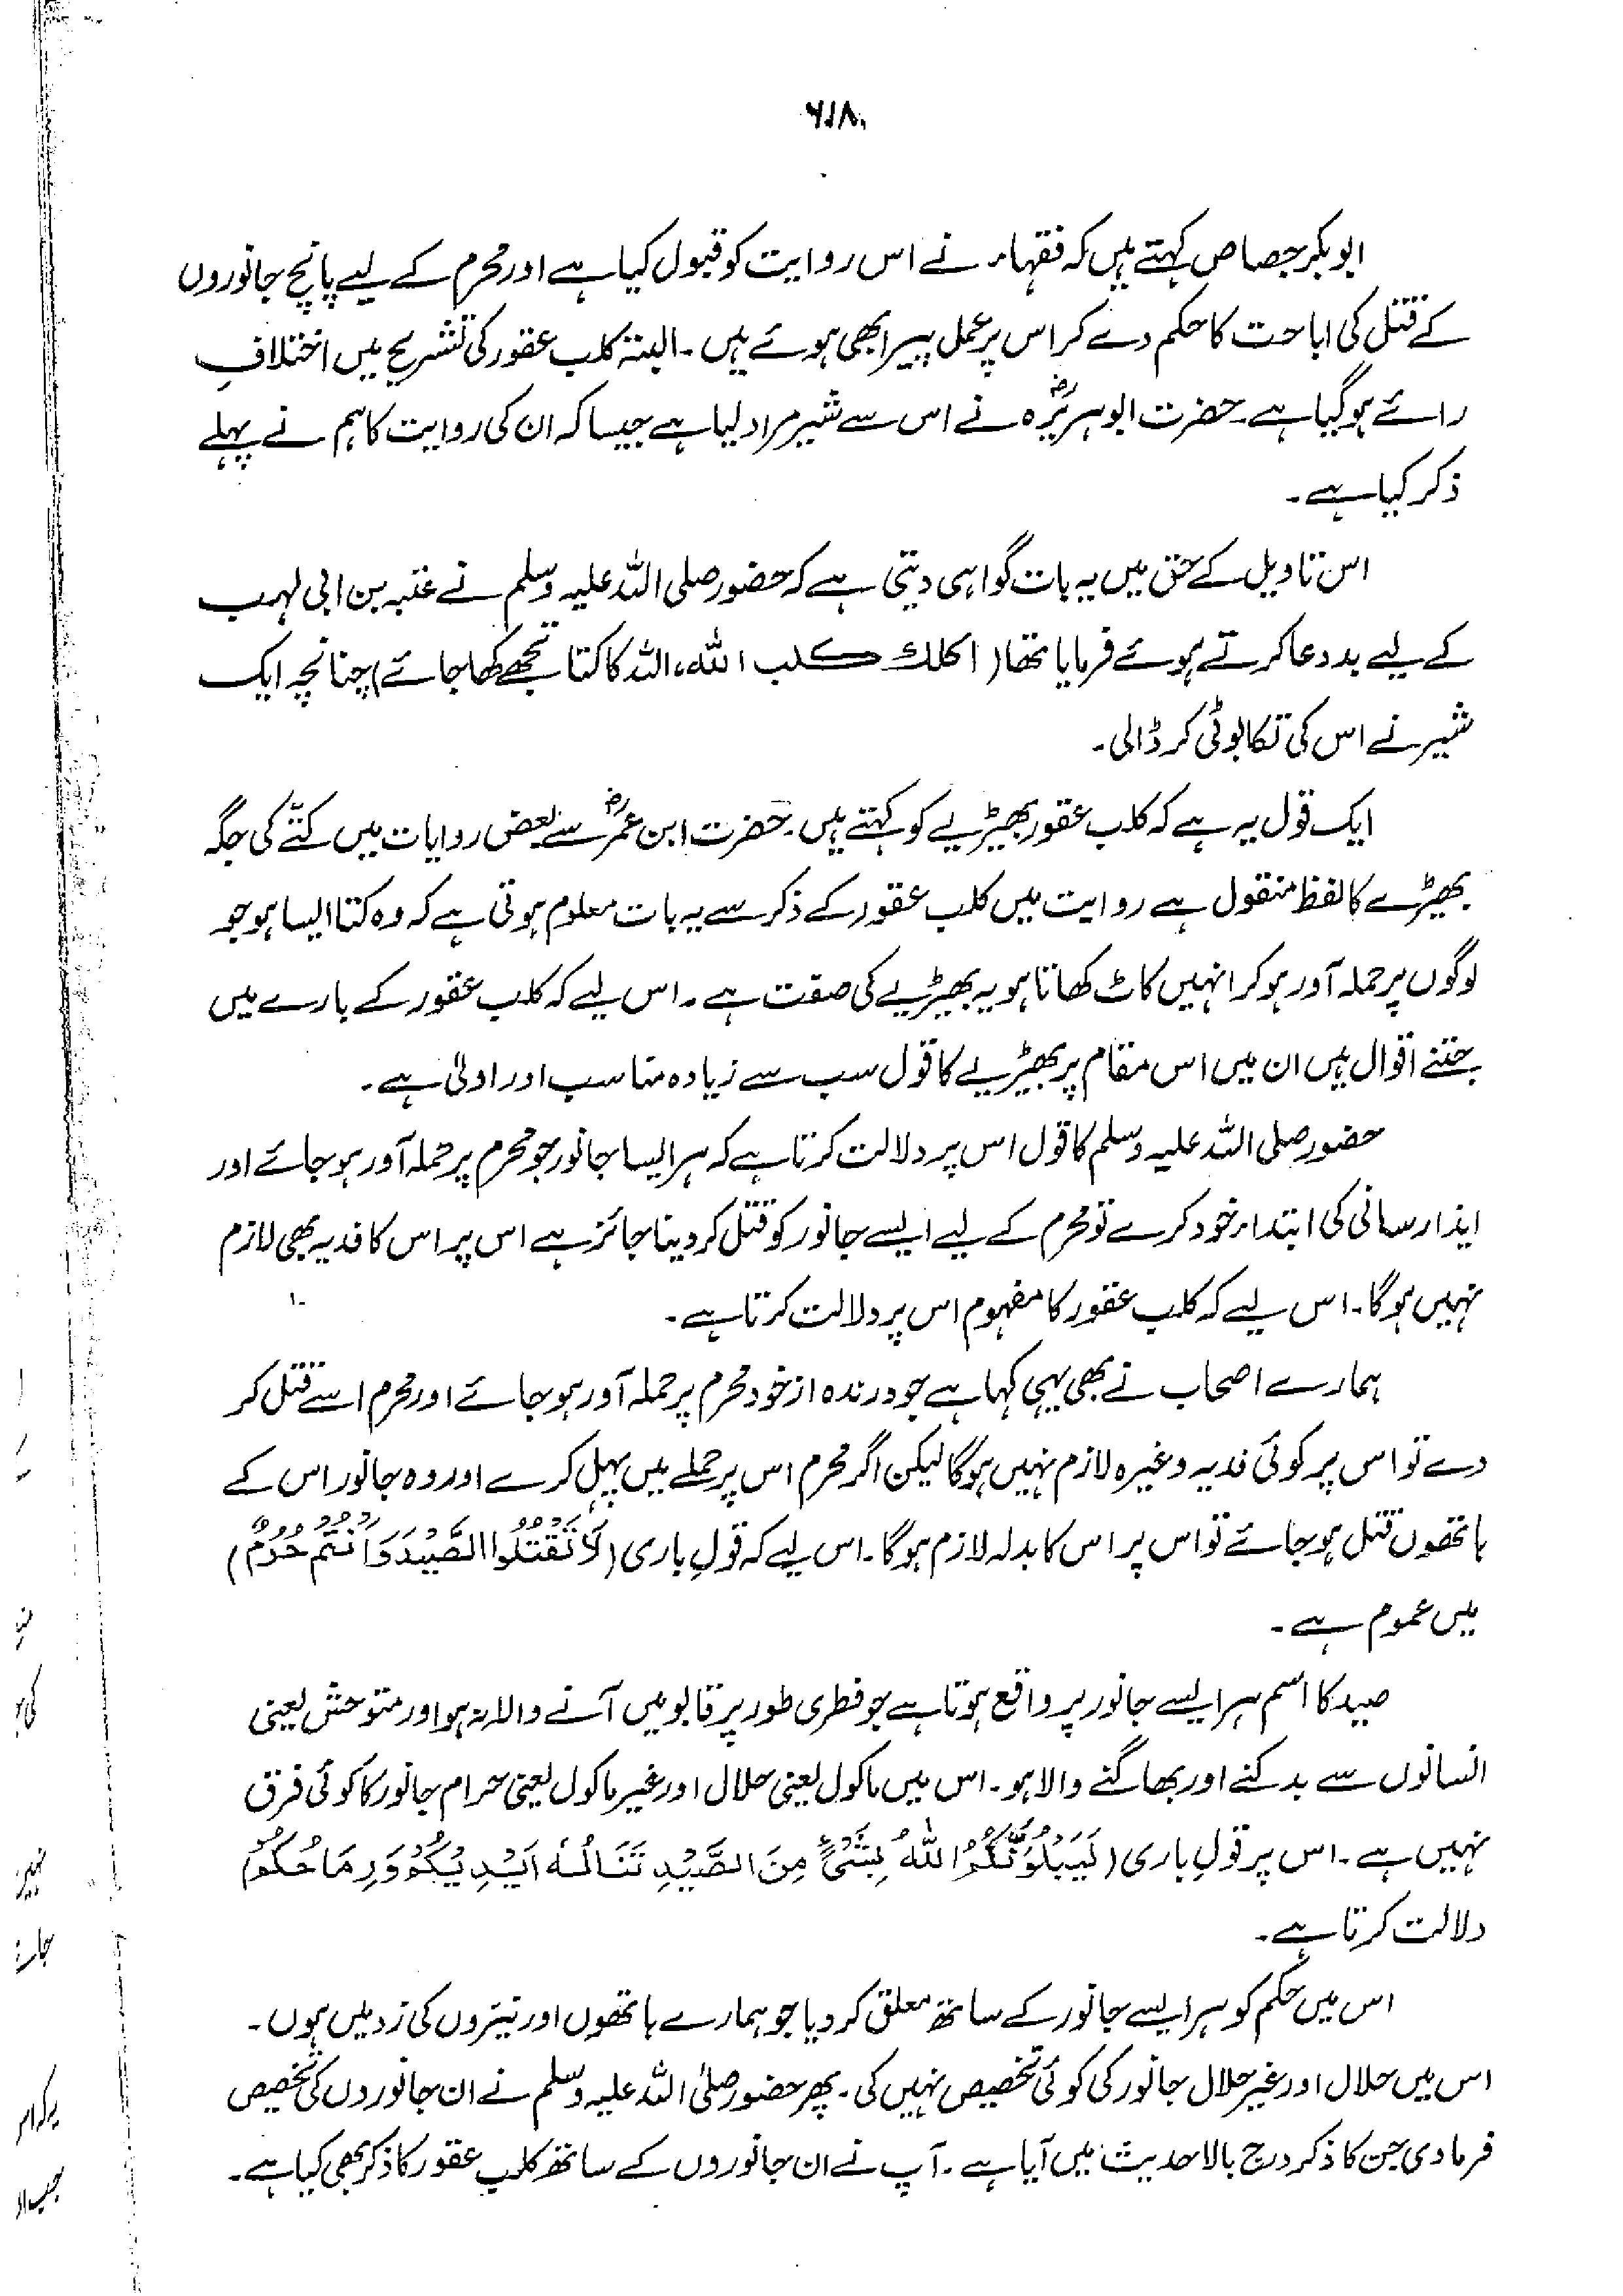 ۶۱۸
ابوبکر جصاص کہتے ہیں کہ فقہاء نے اس روایت کو قبول کیا ہے اور محرم کے لیے پانچ جانوروں
کے قتل کی اباحت کا حکم دے کر اس پر عمل پیرا بھی ہوئے ہیں۔ البتہ کلب عقور کی تشریح میں اختلافِ
رائے ہو گیا ہے۔ حضرت ابوہریرہؓ نے اس سے شیر مراد لیا ہے جیسا کہ ان کی روایت کا ہم نے پہلے
ذکر کیا ہے۔
اس تاویل کے حق میں یہ بات گواہی دیتی ہے کہ حضور صلی اللہ علیہ وسلم نے عتبہ بن ابی لہب
کے لیے بددعا کرتے ہوئے فرمایا تھا (اکلك كلب الله، اللہ کا کتا تجھے کھا جائے) چنانچہ ایک
شیر نے اس کی تکا بوٹی کر ڈالی۔
ایک قول یہ ہے کہ کلب عقور بھیڑیے کو کہتے ہیں۔ حضرت ابن عمرؓ سے بعض روایات میں کتّے کی جگہ
بھیڑے کا لفظ منقول ہے روایت میں کلب عقور کے ذکر سے یہ بات معلوم ہوتی ہے کہ وہ کتا ایسا ہو جو
لوگوں پر حملہ آور ہو کر انہیں کاٹ کھاتا ہو یہ بھیڑیے کی صفت ہے۔ اس لیے کہ کلب عقور کے بارے میں
جتنے اقوال ہیں ان میں اس مقام پر بھیڑیے کا قول سب سے زیادہ مناسب اور اولیٰ ہے۔
حضور صلی اللہ علیہ وسلم کا قول اس پر دلالت کرتا ہے کہ ہر ایسا جانور جو محرم پر حملہ آور ہو جائے اور
ایذا رسانی کی ابتداء خود کرے تو محرم کے لیے ایسے جانور کو قتل کر دینا جائز ہے اس پر اس کا فدیہ بھی لازم
نہیں ہوگا۔ اس لیے کہ کلب عقور کا مفہوم اس پر دلالت کرتا ہے۔
ہمارے اصحاب نے بھی یہی کہا ہے جو درندہ از خود محرم پر حملہ آور ہو جائے اور محرم اسے قتل کر
دے تو اس پر کوئی فدیہ وغیرہ لازم نہیں ہوگا لیکن اگر محرم اس پر حملے میں پہل کرے اور وہ جانور اس کے
ہاتھوں قتل ہو جائے تو اس پر اس کا بدلہ لازم ہوگا۔ اس لیے کہ قولِ باری (لَا تَقْتُلُوا الصَّيْدَ وَاَنْتُمْ حُرُمٌ)
میں عموم ہے۔
صید کا اسم ہر ایسے جانور پر واقع ہوتا ہے جو فطری طور پر قابو میں آنے والا نہ ہو اور متوحش یعنی
انسانوں سے بدکنے اور بھاگنے والا ہو۔ اس میں ماکول یعنی حلال اور غیر ماکول یعنی حرام جانور کا کوئی فرق
نہیں ہے۔ اس پر قولِ باری (لَيَبْلُوَنَّكُمُ اللّٰهُ بِشَيْءٍ مِنَ الصَّيْدِ تَنَالُهٗ اَيْدِيْكُمْ وَرِمَاحُكُمْ)
دلالت کرتا ہے۔
اس میں حکم کو ہر ایسے جانور کے ساتھ معلق کر دیا جو ہمارے ہاتھوں اور نیزوں کی زد میں ہوں۔
اس میں حلال اور غیر حلال جانور کی کوئی تخصیص نہیں کی۔ پھر حضور صلی اللہ علیہ وسلم نے ان جانوروں کی تخصیص
فرما دی جن کا ذکر درج بالا حدیث میں آیا ہے۔ آپ نے ان جانوروں کے ساتھ کلب عقور کا ذکر بھی کیا ہے۔